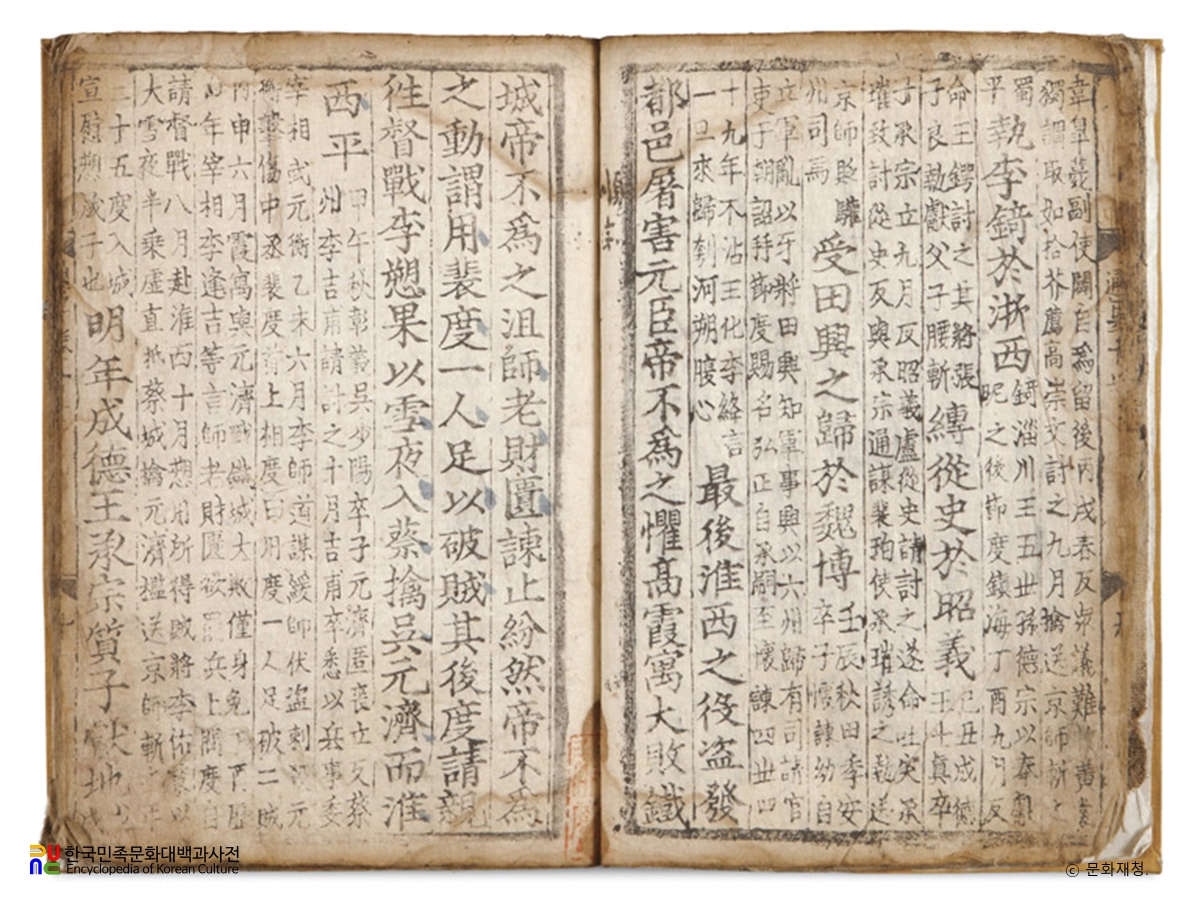 韋皐薨副使闢自爲留後丙戌春反 議難 黃裳
獨謂取如拾芥薦高崇文討之九月擒送京師斬之
蜀平執李錡於浙西
錡淄川王五世孫德宗以奉朝
昵之後節度鎭海丁酉九月反
命王鍔討之其將張
子良執獻父子腰斬縛從史於昭義
己丑成德
王士真卒
子承宗立九月反昭義盧從史請討之遂命吐突承
璀致討從史反與承宗通謀裴珀使承璀誘之執送
京師貶驩
州司馬受田興之歸於魏博
壬辰秋田季安
卒子懷諫幼自
立軍亂以牙將田興知軍事興以六州歸有司請官
吏于朝詔拜節度賜名弘正自承嗣至懷諫四世四
十九年不沾王化李絳言
一旦來歸刳河朔腹心最後淮西之役盜發
都邑屠害元臣帝不爲之懼高霞寓大敗鐵
城帝不爲之沮師老財匱諫止紛然帝不爲
之動謂用裴度一人足以破賊其後度請親
徃督戰李愬果以雪夜入蔡擒吳元濟而淮
西平
甲午秋彰義吳少陽卒子元濟匿喪立反蔡
州李吉甫請討之十月吉甫卒悉以兵事委
宰相武元衡乙未六月李師道謀緩師伏盜刺 元
傷中丞裴度首上相度曰用度一人足破二賊
丙申六月霞寓與元濟戰鐵城大敗僅身免
年宰相李逢吉等言師老財匱欲罷兵上問度自
請督戰八月赴淮西十月愬用所得賊將李佑 以
大雪夜半乘虛直抵蔡城擒元濟檻送京師斬
二十五度入城
宣慰愬成子也明年成德王承宗質子獻地
한국민족문화대백과사전
Encyclopedia of Korean Culture
© 문화재청.